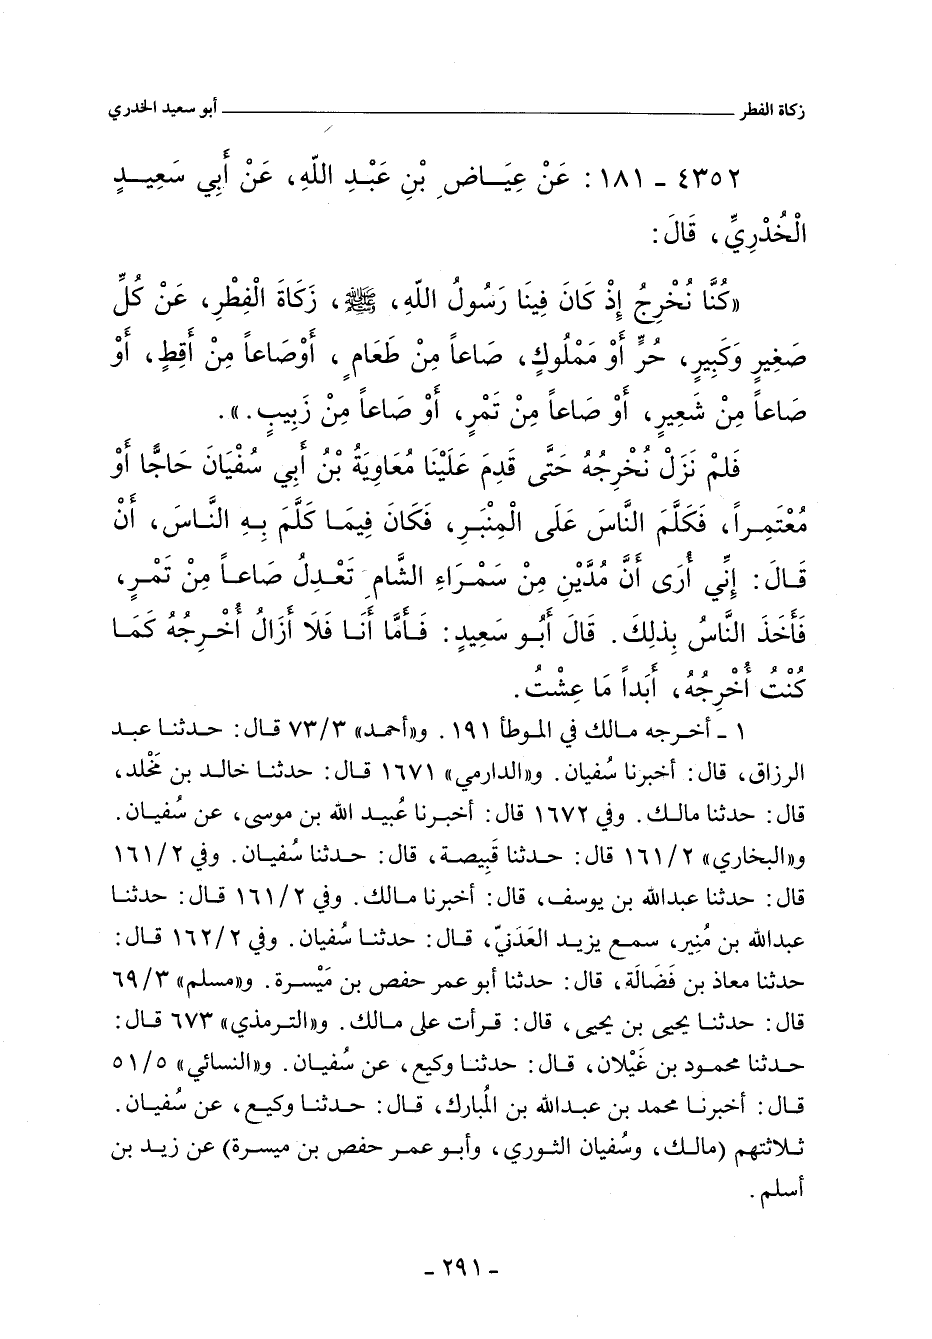 زكاة الفطر ــــــــــــــــــــــــــــــــــــــــ أبو سعيد الخدري
٤٣٥٢ - ١٨١ : عَنْ عِيَاضِ بْنِ عَبْدِ اللّٰهِ، عَنْ أَبِي سَعِيدٍ
الْخُدْرِيِّ، قَالَ:
«كُنَّا نُخْرِجُ إِذْ كَانَ فِينَا رَسُولُ اللّٰهِ، ﷺ، زَكَاةَ الْفِطْرِ، عَنْ كُلِّ
صَغِيرٍ وَكَبِيرٍ، حُرٍّ أَوْ مَمْلُوكٍ، صَاعاً مِنْ طَعَامٍ، أَوْصَاعاً مِنْ أَقِطٍ، أَوْ
صَاعاً مِنْ شَعِيرٍ، أَوْ صَاعاً مِنْ تَمْرٍ، أَوْ صَاعاً مِنْ زَبِيبٍ.».
فَلَمْ نَزَلْ نُخْرِجُهُ حَتَّى قَدِمَ عَلَيْنَا مُعَاوِيَةُ بْنُ أَبِي سُفْيَانَ حَاجًّا أَوْ
مُعْتَمِراً، فَكَلَّمَ النَّاسَ عَلَى الْمِنْبَرِ، فَكَانَ فِيمَا كَلَّمَ بِهِ النَّاسَ، أَنْ
قَالَ: إِنِّي أُرَى أَنَّ مُدَّيْنِ مِنْ سَمْرَاءِ الشَّامِ تَعْدِلُ صَاعاً مِنْ تَمْرٍ،
فَأَخَذَ النَّاسُ بِذٰلِكَ. قَالَ أَبُو سَعِيدٍ: فَأَمَّا أَنَا فَلَا أَزَالُ أُخْرِجُهُ كَمَا
كُنْتُ أُخْرِجُهُ، أَبَداً مَا عِشْتُ.
١ - أخرجه مالك في الموطأ ١٩١. و«أحمد» ٧٣/٣ قال: حدثنا عبد
الرزاق، قال: أخبرنا سُفيان. و«الدارمي» ١٦٧١ قال: حدثنا خالد بن مَخْلد،
قال: حدثنا مالك. وفي ١٦٧٢ قال: أخبرنا عُبيد الله بن موسى، عن سُفيان.
و«البخاري» ١٦١/٢ قال: حدثنا قَبِيصة، قال: حدثنا سُفيان. وفي ١٦١/٢
قال: حدثنا عبدالله بن يوسف، قال: أخبرنا مالك. وفي ١٦١/٢ قال: حدثنا
عبدالله بن مُنِير، سمع يزيد العَدَنيّ، قال: حدثنا سُفيان. وفي ١٦٢/٢ قال:
حدثنا معاذ بن فَضَالَة، قال: حدثنا أبو عمر حفص بن مَيْسرة. و«مسلم» ٦٩/٣
قال: حدثنا يحيى بن يحيى، قال: قرأت على مالك. و«الترمذي» ٦٧٣ قال:
حدثنا محمود بن غَيْلان، قال: حدثنا وكيع، عن سُفيان. و«النسائي» ٥١/٥
قال: أخبرنا محمد بن عبدالله بن المُبارك، قال: حدثنا وكيع، عن سُفيان.
ثلاثتهم (مالك، وسُفيان الثوري، وأبو عمر حفص بن ميسرة) عن زيد بن
أسلم.
- ٢٩١ -